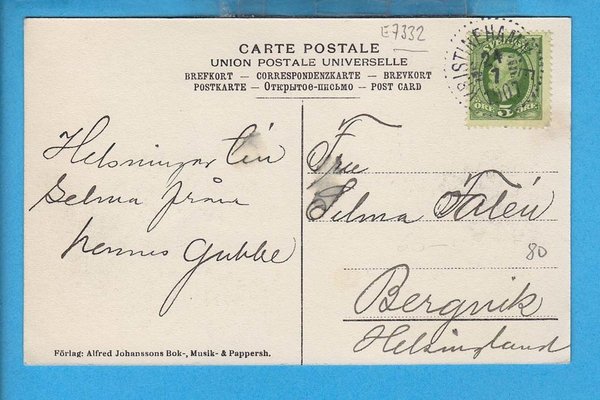 E7332
CARTE POSTALE
UNION POSTALE UNIVERSELLE
BREFKORT — CORRESPONDENZKARTE — BREVKORT
POSTKARTE — Открытое-письмо — POST CARD
KRISTINEHAMN
SVERIGE
ÖRE 5 ÖRE
Helsningar till
Selma från
hennes Gubbe
Fru
Selma Falén
80
Bergvik
Helsingland
Förlag: Alfred Johanssons Bok-, Musik- & Pappersh.